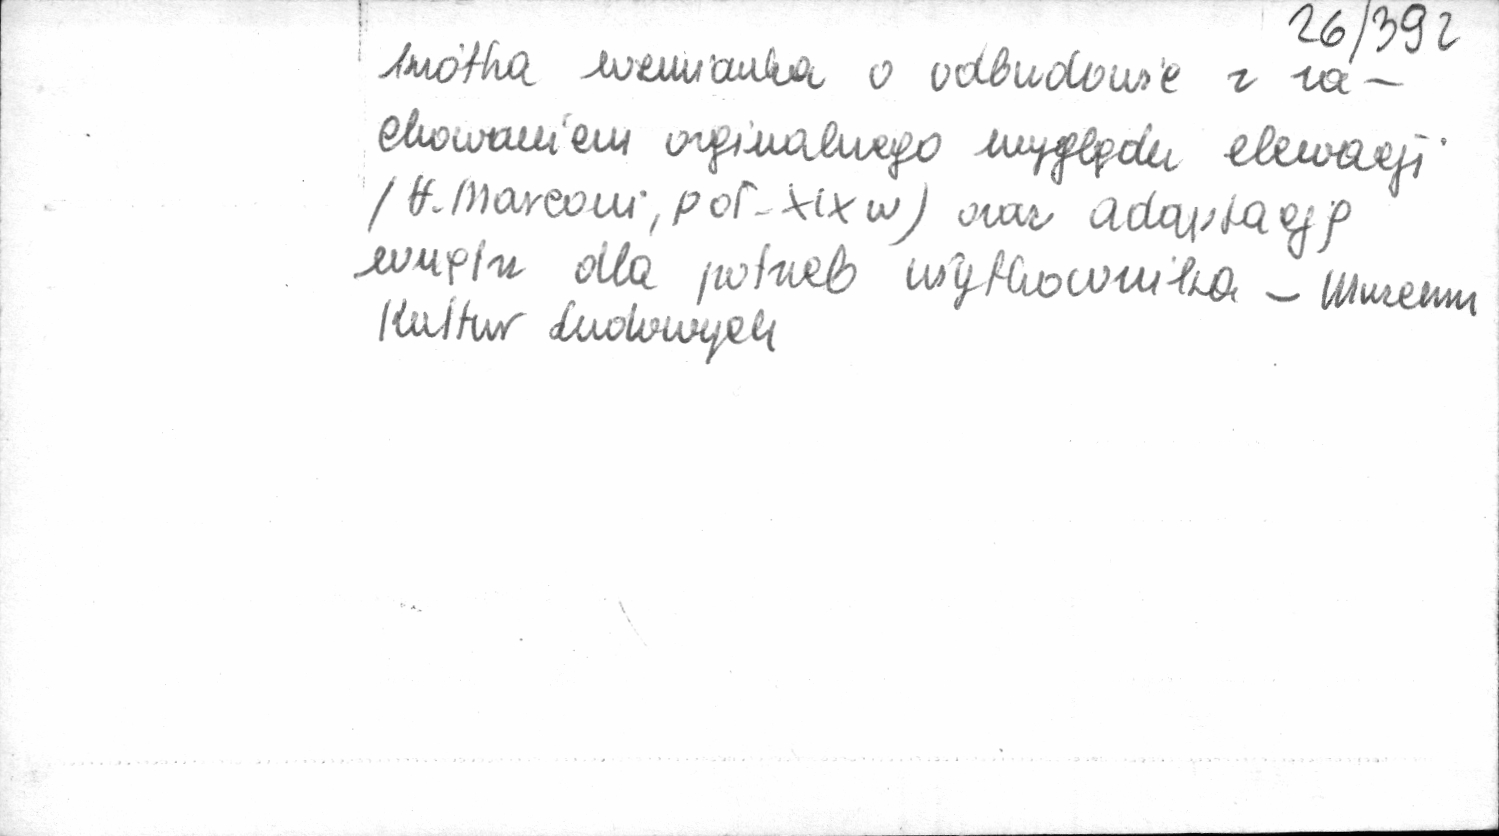 26/392
krótka wzmianka o odbudowie z za-
chowaniem orginalnego wyglądu elewacji
/H. Marconi, poł. XIX w) oraz adaptację
wnętrz dla potrzeb użytkownika - Muzeum
Kultur Ludowych